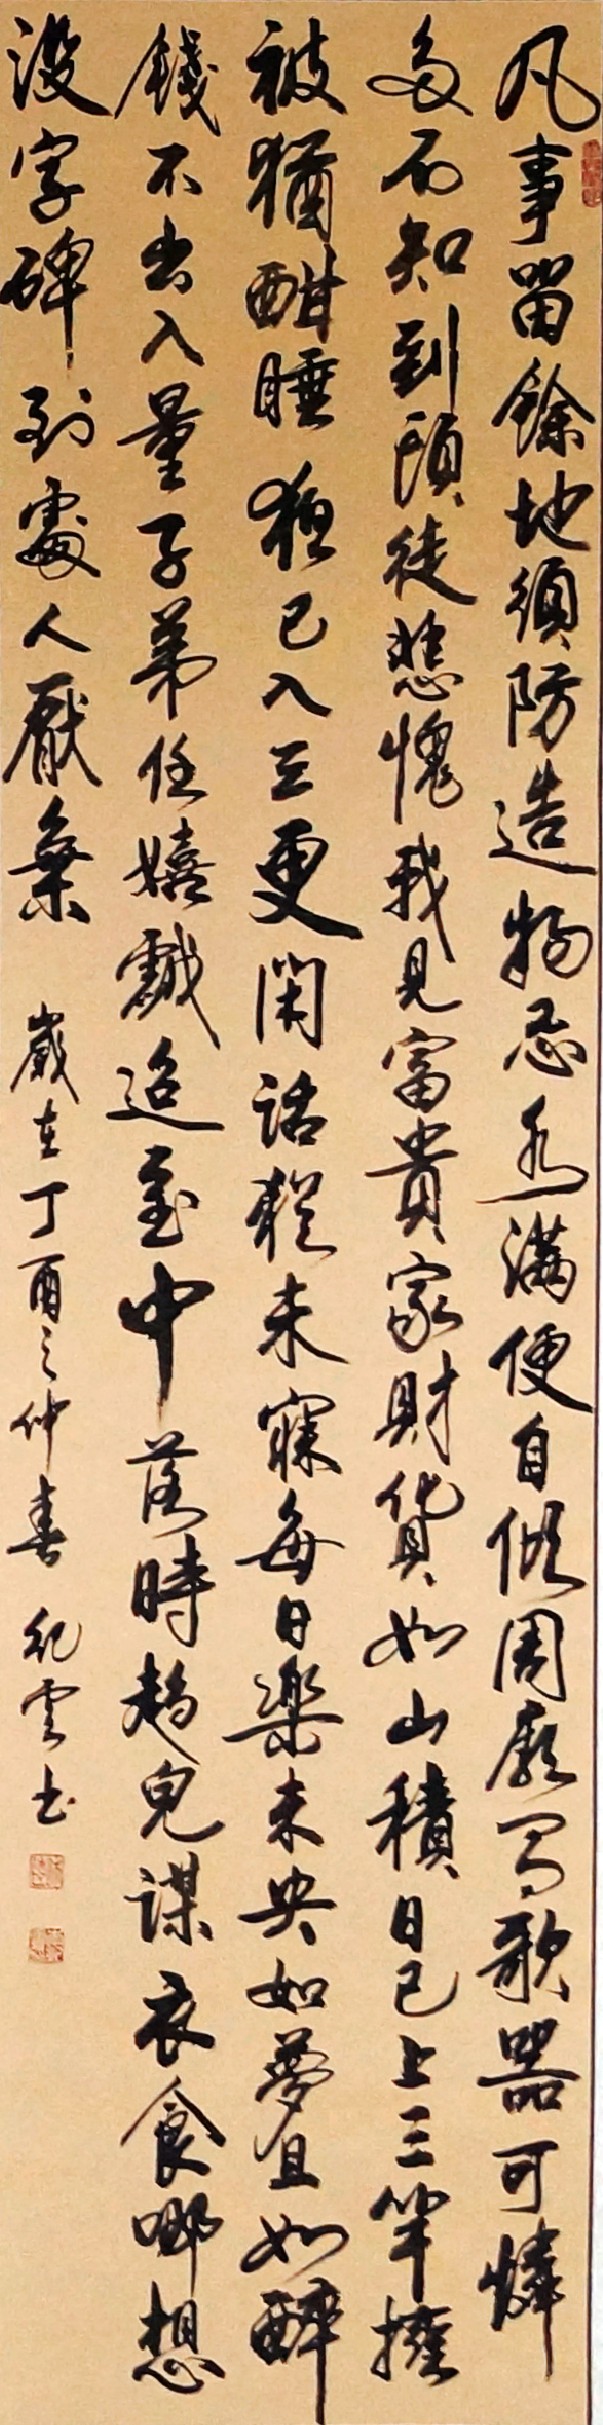 凡事留餘地須防造物忌水滿便自傾周廟寫欹器可憐
多不知到頭徒悲愧我見富貴家財貨如山積日已上三竿擁
被猶酣睡夜已入三更閑話猶未寐每日樂未央如夢且如醉
錢不出入量子弟任嬉戲迨至中落時趨兒謀衣食哪想
没字碑到處人厭棄
歲在丁酉之仲春 紀雲书